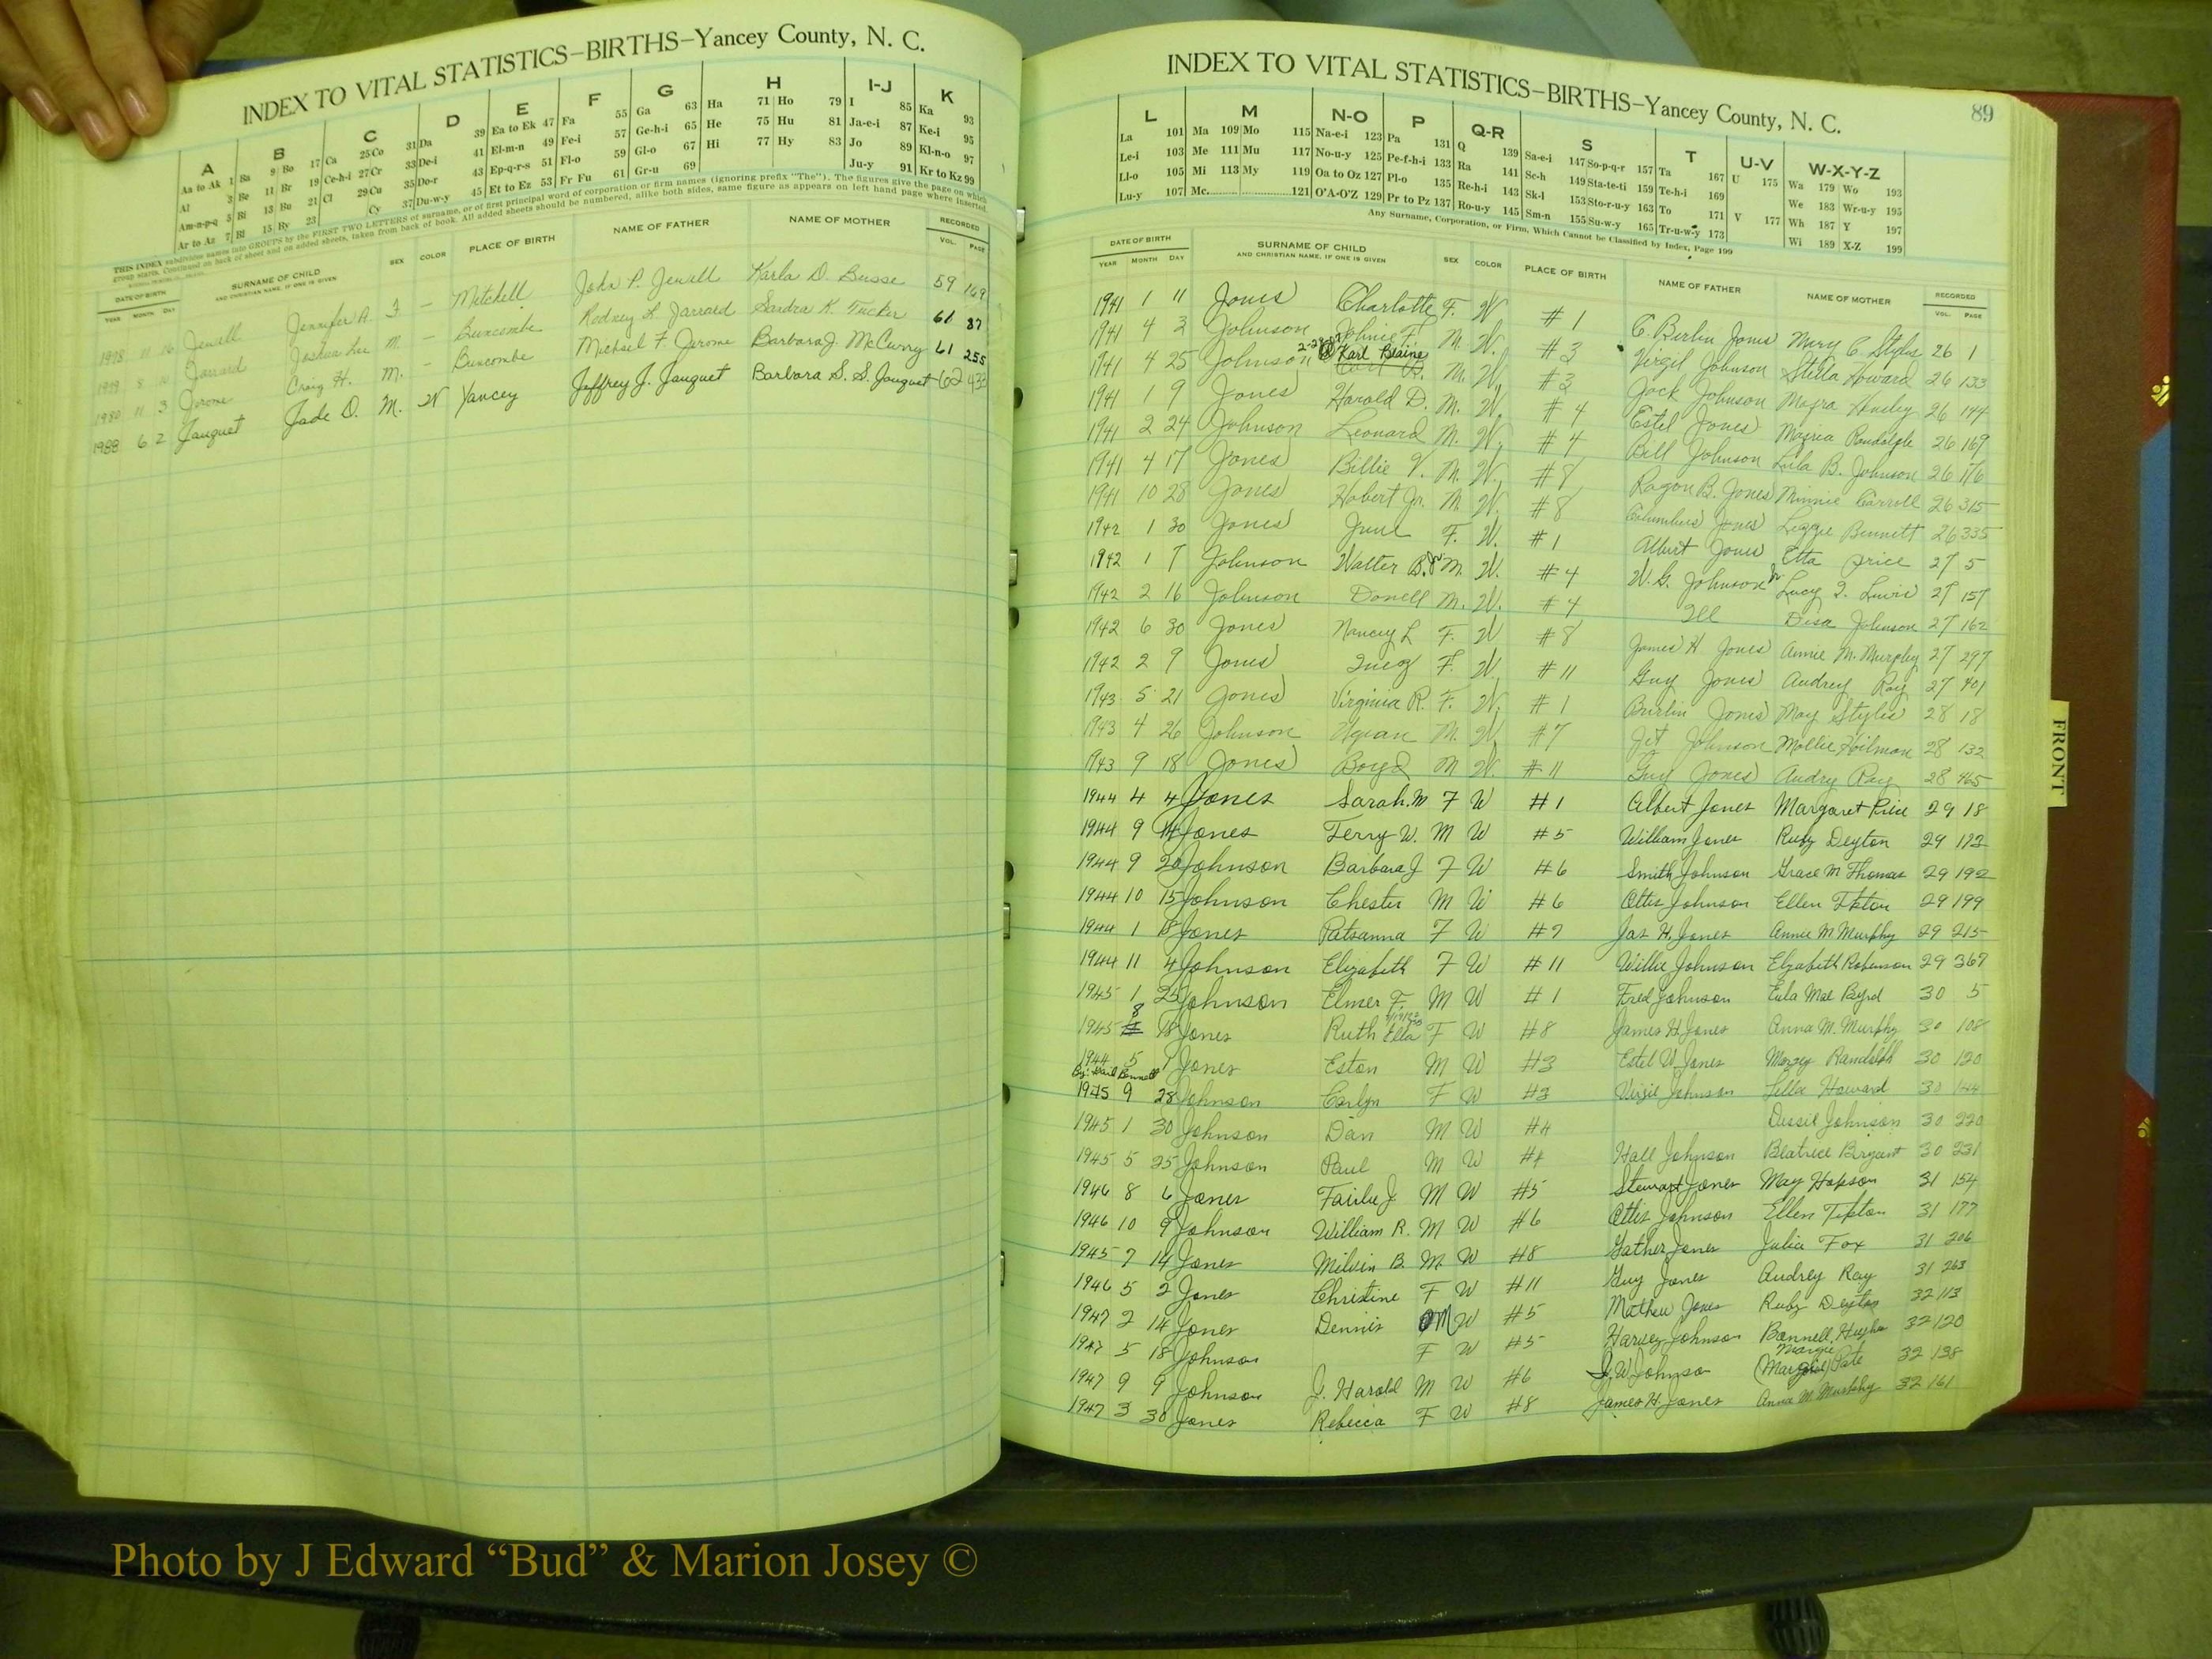 INDEX TO VITAL STATISTICS—BIRTHS—Yancey County, N. C.
A B C D E F G H I-J K
Aa to Ak 1 Ba 9 Bo 17 Ca 25 Co 31 Da 39 Ea to Ek 47 Fa 55 Ga 63 Ha 71 Ho 79 I 85 Ka 93
Al 3 Be 11 Br 19 Ce-h-i 27 Cr 33 De-i 41 El-m-n 49 Fe-i 57 Ge-h-i 65 He 75 Hu 81 Ja-e-i 87 Ke-i 95
Am-n-p-q 5 Bi 13 Bu 21 Cl 29 Cu 35 Do-r 43 Ep-q-r-s 51 Fl-o 59 Gl-o 67 Hi 77 Hy 83 Jo 89 Kl-n-o 97
Ar to Az 7 Bl 15 By 23 Cy 37 Du-w-y 45 Et to Ez 53 Fr Fu 61 Gr-u 69 Ju-y 91 Kr to Kz 99
THIS INDEX subdivides names into GROUPS by the FIRST TWO LETTERS of surname, or of first principal word of corporation or firm names (ignoring prefix "The"). The figures give the page on which
group starts. Continued on back of sheet and on added sheets, taken from back of book. All added sheets should be numbered, alike both sides, same figure as appears on left hand page where inserted.
DATE OF BIRTH SURNAME OF CHILD SEX COLOR PLACE OF BIRTH NAME OF FATHER NAME OF MOTHER RECORDED
YEAR MONTH DAY AND CHRISTIAN NAME, IF ONE IS GIVEN VOL. PAGE
1978 11 16 Jewell Jennifer A. F — Mitchell John P. Jewell Karla D. Busse 59 169
1979 8 Jarrard Joshua Lee M. — Buncombe Rodney L. Jarrard Sandra K. Tucker 61 87
1980 11 3 Jerome Craig H. M. — Buncombe Michael F. Jerome Barbara J. McCurry 61 255
1988 6 2 Jauquet Jade D. M. W Yancey Jeffrey J. Jauquet Barbara S. S. Jauquet 62 433
INDEX TO VITAL STATISTICS—BIRTHS—Yancey County, N. C.
89
L M N-O P Q-R S T U-V W-X-Y-Z
La 101 Ma 109 Mo 115 Na-e-i 123 Pa 131 Q 139 Sa-e-i 147 So-p-q-r 157 Ta 167 U 175 Wa 179 Wo 193
Le-i 103 Me 111 Mu 117 No-u-y 125 Pe-f-h-i 133 Ra 141 Sc-h 149 Sta-te-ti 159 Te-h-i 169 We 183 Wr-u-y 195
Ll-o 105 Mi 113 My 119 Oa to Oz 127 Pl-o 135 Re-h-i 143 Sk-l 153 Sto-r-u-y 163 To 171 V 177 Wh 187 Y 197
Lu-y 107 Mc 121 O'A-O'Z 129 Pr to Pz 137 Ro-u-y 145 Sm-n 155 Su-w-y 165 Tr-u-w-y 173 Wi 189 X-Z 199
Any Surname, Corporation, or Firm, Which Cannot be Classified by Index, Page 199
DATE OF BIRTH SURNAME OF CHILD SEX COLOR PLACE OF BIRTH NAME OF FATHER NAME OF MOTHER RECORDED
YEAR MONTH DAY AND CHRISTIAN NAME, IF ONE IS GIVEN VOL. PAGE
1941 1 11 Jones Charlotte F. W #1 C. Berlin Jones Mary C. Styles 26 1
1941 4 3 Johnson Johnie F. M. W. #3 Virgil Johnson Stella Howard 26 133
1941 4 25 Johnson Karl Blaine M. W. #3 Jack Johnson Hensley 26 144
1941 1 9 Jones Harold D. M. W. #4 Estel Jones Randolph 26 169
1941 2 24 Johnson Leonard M. W. #4 Bill Johnson Lula B. Johnson 26 176
1941 4 17 Jones Billie V. M. W. #8 Ragon B. Jones Minnie Carroll 26 315
1941 10 28 Jones Hobert Jr. M. W. #8 Columbus Jones Lizzie Bennett 26 335
1942 1 30 Jones June F. W. #1 Albert Jones Etta Price 27 5
1942 1 7 Johnson Walter B. Jr M. W. #4 W. G. Johnson Jr Lucy Lewis 27 157
1942 2 16 Johnson Donell M. W. #4 Ill Disa Johnson 27 162
1942 6 30 Jones Nancy L F. W #8 James H Jones Annie M. Murphy 27 297
1942 2 9 Jones Inez F. W. #11 Guy Jones Audrey Ray 27 401
1943 5 21 Jones Virginia R. F. W. #1 Burlin Jones May Styles 28 18
1943 4 26 Johnson M. W. #7 Jet Johnson Mollie Hoilman 28 132
1943 9 18 Jones Boyd M W. #11 Guy Jones Audry Ray 28 465
1944 4 4 Jones Sarah. M F W #1 Albert Jones Margaret Price 29 18
1944 9 14 Jones Terry W. M W #5 William Jones Ruby Deyton 29 173
1944 9 20 Johnson Barbara J F W #6 Smith Johnson Grace M Thomas 29 192
1944 10 15 Johnson Chester M W #6 Ottis Johnson Ellen Tipton 29 199
1944 1 18 Jones Patsanna F W #7 Jas H. Jones Annie M Murphy 29 215
1944 11 4 Johnson Elizabeth F W #11 Willie Johnson Elzabeth Robinson 29 367
1945 1 25 Johnson Elmer F. M W #1 Fred Johnson Eula Mae Byrd 30 5
1945 8 18 Jones Ruth Ella F W #8 James H. Jones Anna M. Murphy 30 108
1944 5 7 Jones Eston M W #3 Estel W Jones Randolph 30 120
1945 9 28 Johnson Carlyn F W #3 Virgil Johnson Howard 30 144
1945 1 30 Johnson Dan M W #4 Dessie Johnson 30 220
1945 5 25 Johnson Paul M W #4 Hall Johnson Beatrice Bryant 30 231
1946 8 6 Jones Fairlie J M W #5 Stewart Jones May Hopson 31 154
1946 10 9 Johnson William R. M W #6 Ottis Johnson Ellen Tipton 31 177
1945 7 14 Jones Milvin B. M. W #8 Gather Jones Julia Fox 31 206
1946 5 2 Jones Christine F W #11 Guy Jones Audrey Ray 31 263
1947 2 14 Jones Dennis M W #5 Mathew Jones Ruby Deyton 32 113
1947 5 18 Johnson F W #5 Harvey Johnson Bonnell Hughes 32 120
1947 9 9 Johnson J. Harold M W #6 J. W Johnson Margie Pate 32 138
1947 3 30 Jones Rebecca F W #8 James H. Jones Anna M. Murphy 32 161
FRONT
Photo by J Edward “Bud” & Marion Josey ©